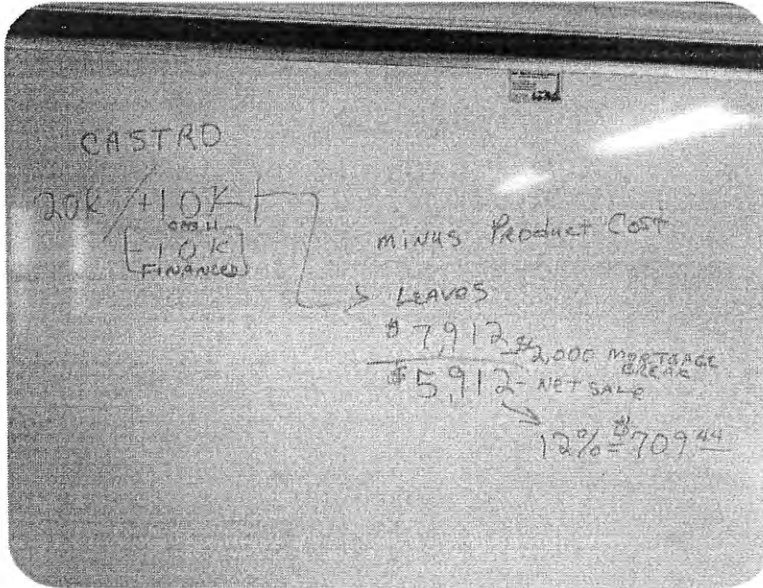 CASTRO
20K / +10K
CASH
-10K
FINANCED
MINUS Product Cost
LEAVES
$7,912 - $2,000 MORTGAGE
BREAK
$5,912 - NET SALE
12% = $709.44